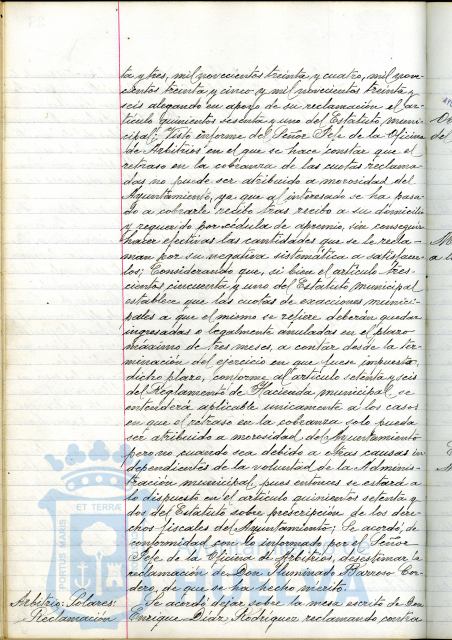 ta y tres, mil novecientos treinta y cuatro, mil nove-
cientos treinta y cinco y mil novecientos treinta y
seis alegando en apoyo de su reclamación el ar-
tículo quinientos sesenta y uno del Estatuto muni-
cipal; Visto informe del Señor Jefe de la Oficina
de Arbitrios en el que se hace constar que el
retraso en la cobranza de las cuotas reclama-
das no puede ser atribuido a morosidad del
Ayuntamiento, ya que al interesado se ha pasa-
do a cobrarle recibo tras recibo a su domicilio
y requerido por cédula de apremio, sin conseguir
hacer efectivas las cantidades que se le recla-
man por su negativa sistemática a satisfacer-
los; Considerando que, si bien el artículo tres-
cientos cincuenta y uno del Estatuto municipal
establece que las cuotas de exacciones munici-
pales a que el mismo se refiere deberán quedar
ingresadas o legalmente anuladas en el plazo
máximo de tres meses, a contar desde la ter-
minación del ejercicio en que fuese impuesta,
dicho plazo, conforme al artículo setenta y seis
del Reglamento de Hacienda municipal se
entenderá aplicable unicamente a los casos
en que el retraso en la cobranza solo pueda
ser atribuido a morosidad del Ayuntamiento
pero no cuando sea debido a otras causas in-
dependientes de la voluntad de la Adminis-
tración municipal, pues entonces se estará a
lo dispuesto en el artículo quinientos setenta y
dos del Estatuto sobre prescripción de los dere-
chos fiscales del Ayuntamiento; Se acordó, de
conformidad con lo informado por el Señor
Jefe de la Oficina de Arbitrios, desestimar la
reclamación de Don Iluminado Barroso Cor-
dero, de que se ha hecho mérito.
Arbitrio: Solares:
Reclamación
Se acordó dejar sobre la mesa escrito de Don
Enrique Díaz Rodríguez reclamando contra
PORTUS MARIS
ET TERRAE